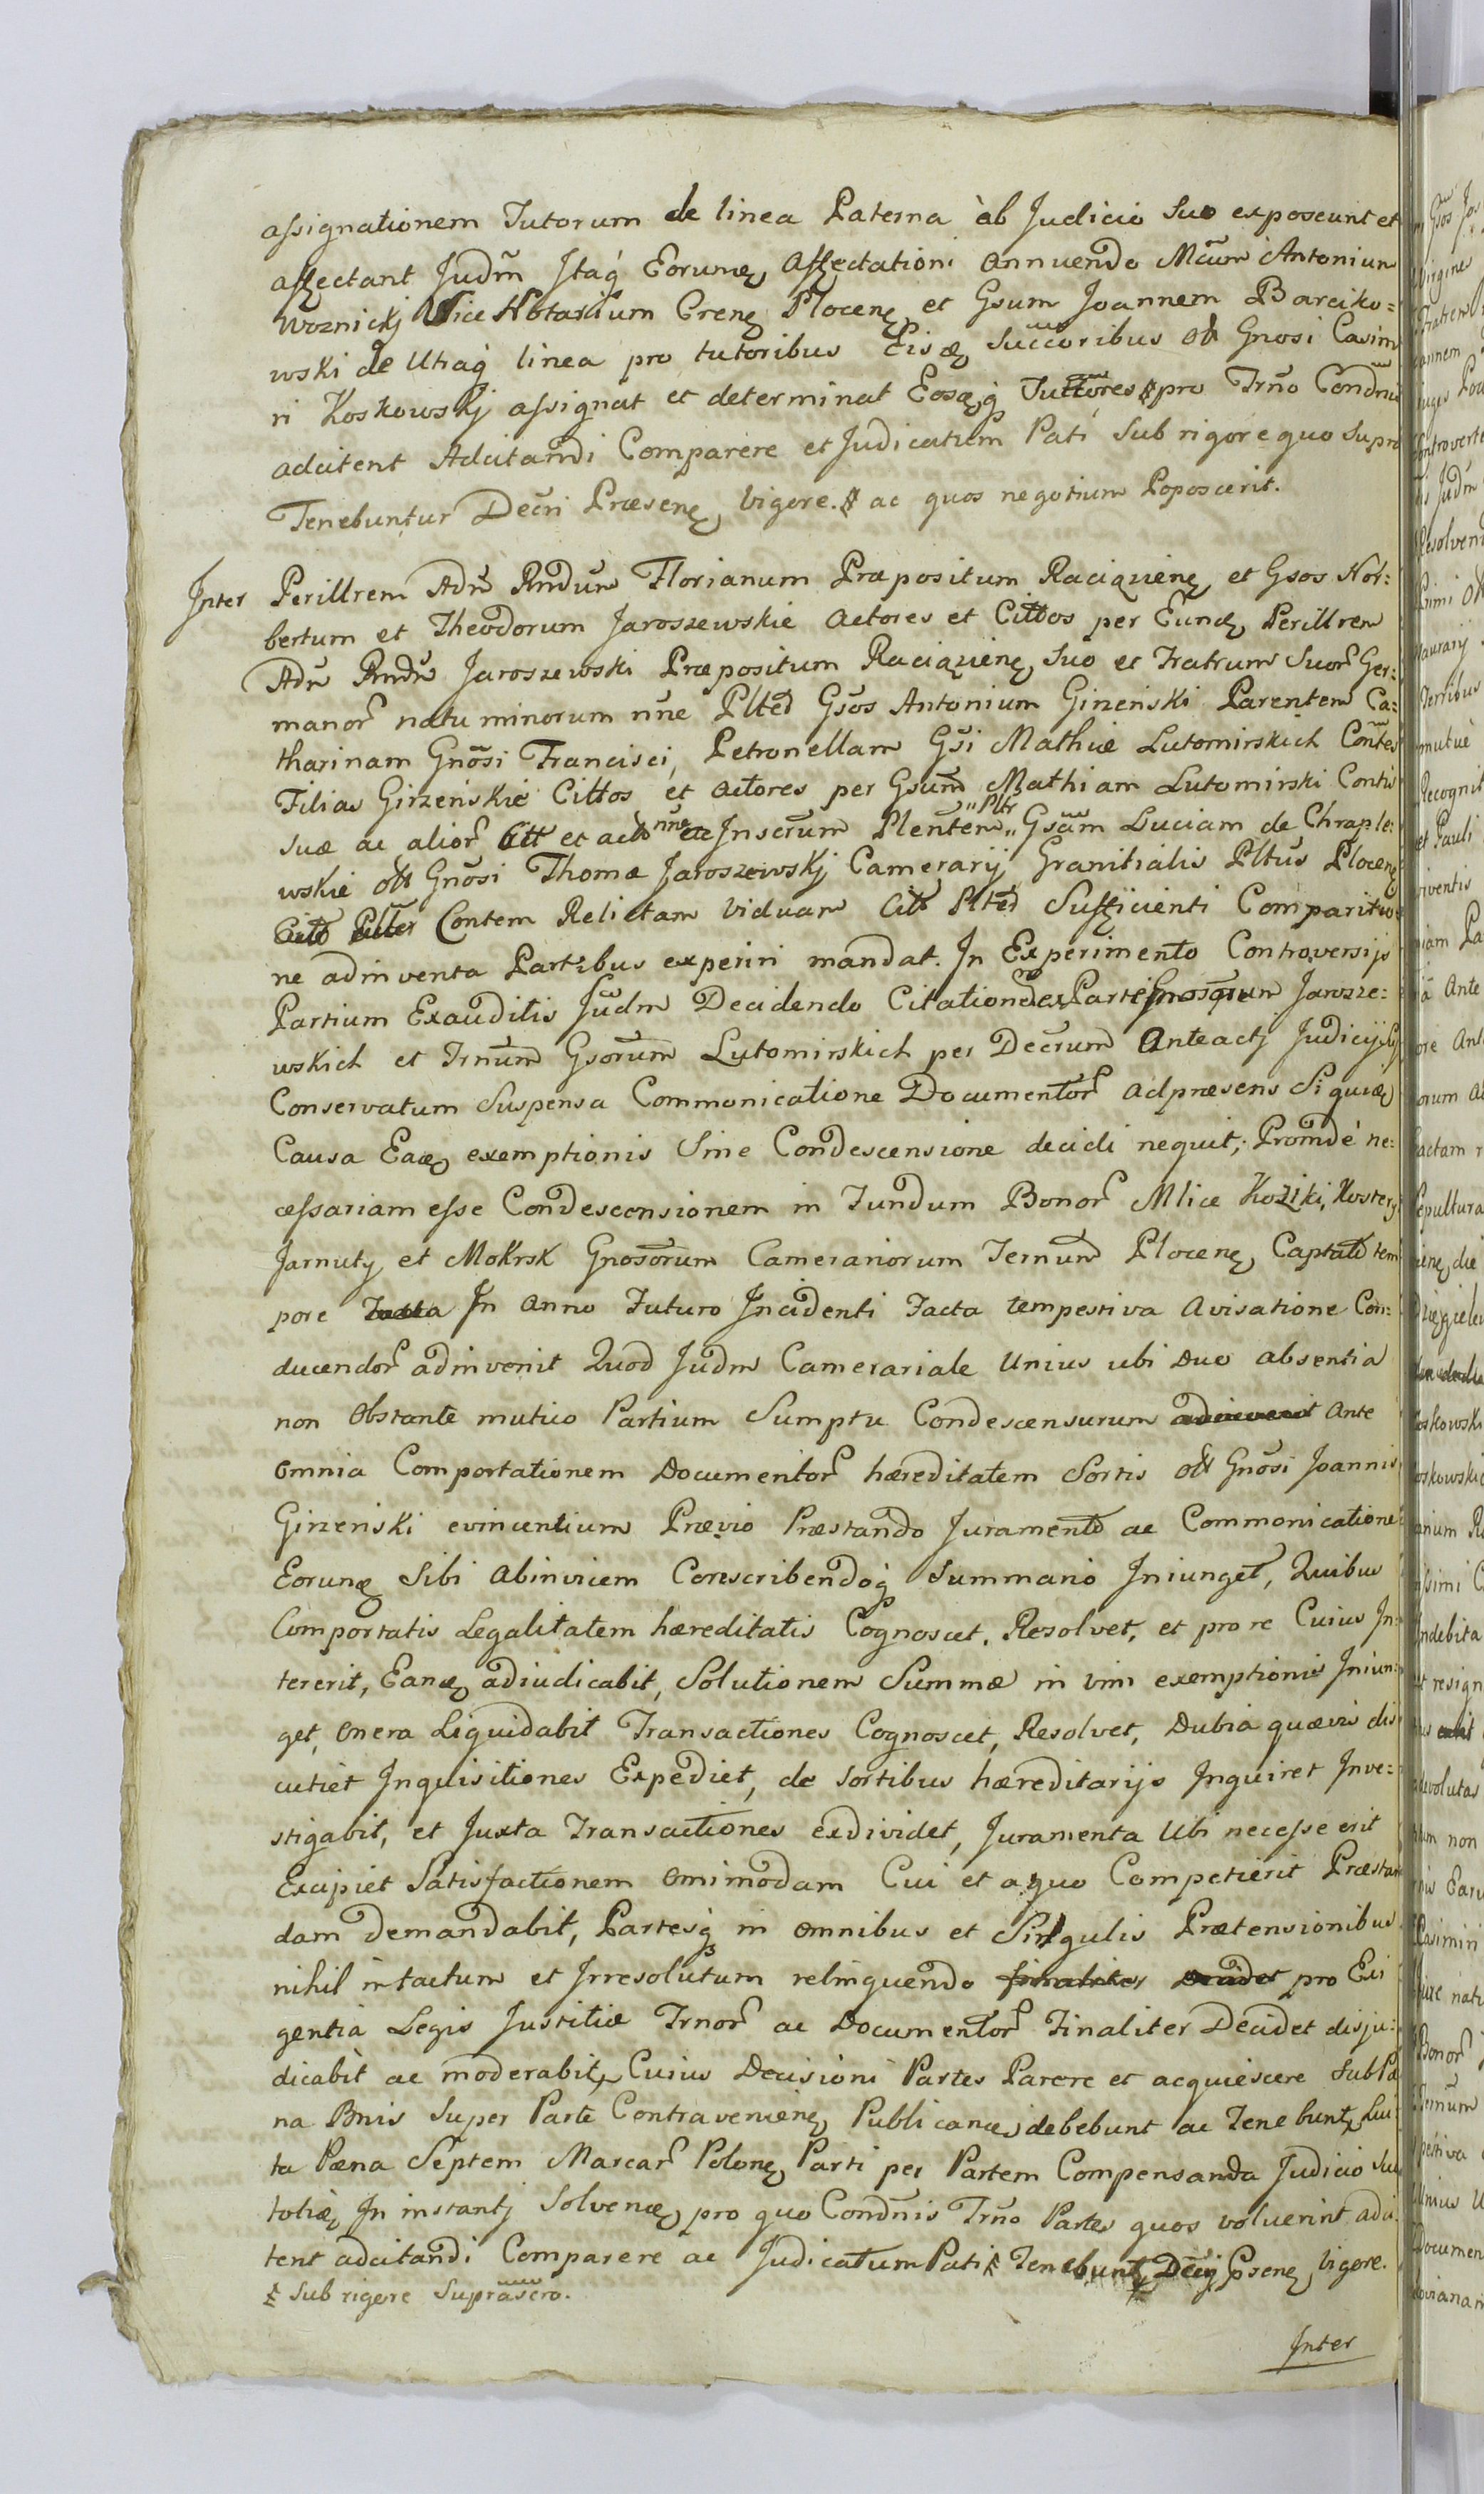 assignationem Tutorum de linea Paterna ab Judicio Suo exposcunt et
affectant Judm Itaq Eorunē Affectationi annuendo Mcum Antonium
Woznickj Vice Notarium Crenē Plocenē et Gsum Joannem Barciko=
wski de Utraq linea pro tutoribus Eisdē Succoribus olt Gnosi Casimi
ri Koskowskj assignat et determinat Eosdēq Tuttores pro Trno Condnis
adcitent Adcitandi Comparere et Judicatum Pati Sub rigore quo Supra
Tenebuntur Decri Præsenē Vigore. ac quos negotium Poposcerit.
Inter Perillrem Adm Rndum Florianum Præpositum Raciązienē et Gsos Nor=
bertum et Theodorum Jaroszewskie Actores et Cittos per Eundē Perillrem
Adm Rndm Jaroszewski Præpositum Raciązienē Suo et Fratrum Suor Ger=
manor natu minorum nne Plted Gsos Antonium Girzenski Parentem Ca=
tharinam Gnosi Francisci, Petronellam Gsi Mathiæ Lutomirskich Contes
Filias Girzenskie Cittos et actores per Gsum Mathiam Lutomirski Contis
Suæ ac alior Citt et act nne Inscrum Plentem Pltr Gsam Luciam de Chraple=
wskie olt Gnosi Thomæ Jaroszewskj Camerarij Granitialis Pltus Plocenē
Contem Relictam Viduam Citt Plted Sufficienti Comparitio=
ne adinventa Partibus experiri mandat. In Experimento Controversijs
Partium Exauditis Judm Decidendo Citationem ex Parte Gnosorum Jarosze=
wskich et Trnum Gsorum Lutomirskich per Decrum Anteactj Judicij
Conservatum Suspensa Communicatione Documentor adpræsens Siquidē
Causa Eadē exemptionis Sine Condescensione decidi nequit; Proinde ne=
cessariam esse Condescensionem in Fundum Bonor Mlicæ Koziki, Kostery
Jarnuty et Mokrsk Gnosorum Camerariorum Ternum Plocenē Captato tem
pore In Anno Futuro Incidenti Facta tempestiva Avisatione Con=
ducendor adinvenit Quod Judm Camerariale Unius ubi Duo absentia
non Obstante mutuo Partium Sumptu Condescensurum adinvenit Ante
Omnia Comportationem Documentor hæreditatem Sortis olt Gnosi Joannis
Girzenski evincentium Prævio Præstando Juramento ac Communicatione
Eorundē Sibi Abinvicem Conscribendoq Summario Iniunget, Quibus
Comportatis Legalitatem hæreditatis Cognoscet, Resolvet, et pro re Cuius In=
tererit, Eandē adiudicabit, Solutionem Summæ in vim exemptionis Iniun=
get, Onera Liquidabit Transactiones Cognoscet, Resolvet, Dubia quævis dis
cutiet Inquisitiones Expediet, de Sortibus hæreditarijs Inquiret Inve=
stigabit, et Juxta Transactiones exdividet, Juramenta Ubi necesse erit
Excipiet Satisfactionem Omimodam Cui et aquo Competierit Præstan
dam Demandabit, Partesq in omnibus et Singulis Prætensionibus
nihil intactum et Irresolutum relinquendo finaliter decidet pro Exi
gentia Legis Justitiæ Trnor ac Documentor Finaliter Decidet disju=
dicabit ac moderabit, Cuius Decisioni Partes Parere et acquiescere Sub Pæ
na Bnis Super Parte Contravenienē Publicandē debebunt ac Tenebunt, Lui=
ta Pæna Septem Marcar Polonē Parti per Partem Compensanda Judicio Suo
totidē In instantj Solvendē pro quo Condnis Trno Partes quos voluerint adci
tent adcitandi Comparere ac Judicatum Pati Tenebunt Decrj Psenē Vigore.
Sub rigore Suprascro.
Inter